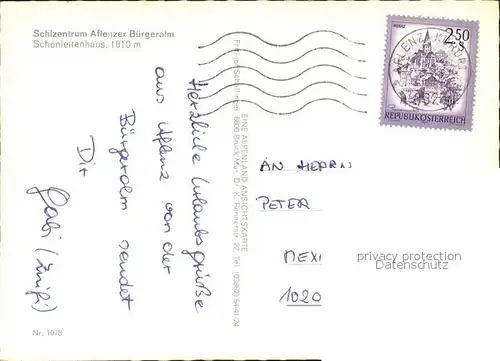 Schizentrum Aflenzer Bürgeralm
Schönleitenhaus, 1810 m
Herzliche Urlaubsgrüße
aus Aflenz von der
Bürgeralm sendet
Dir
Gabi
Nr. 1078
EINE ALPENLAND ANSICHTSKARTE
8600 Bruck/Mur, Dr. K. Rennerstr. 22, Tel. (03862) 54-41-24
2.50
S
REPUBLIK ÖSTERREICH
AN HERRN
PETER
MEXI
1020
privacy protection
Datenschutz